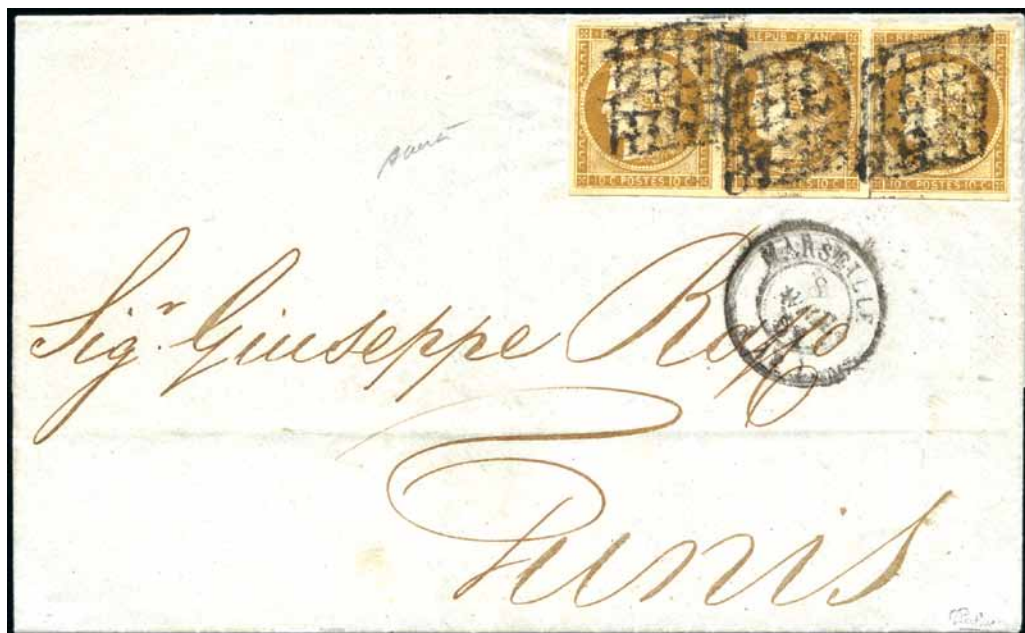 REPUB FRANC
10 C POSTES 10 C
10 C POSTES 10 C
MARSEILLE
Sig.r Giuseppe Raffo
Tunis